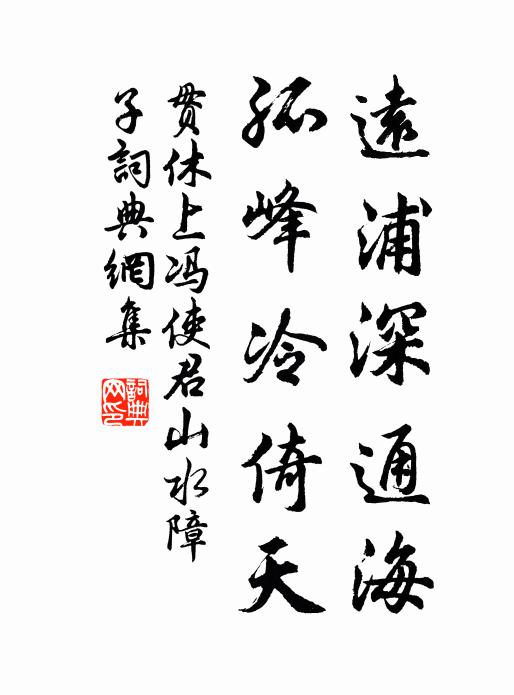 遠浦深通海
孤峰冷倚天
貫休上冯使君山水障
子詞典網集
詞典
网印